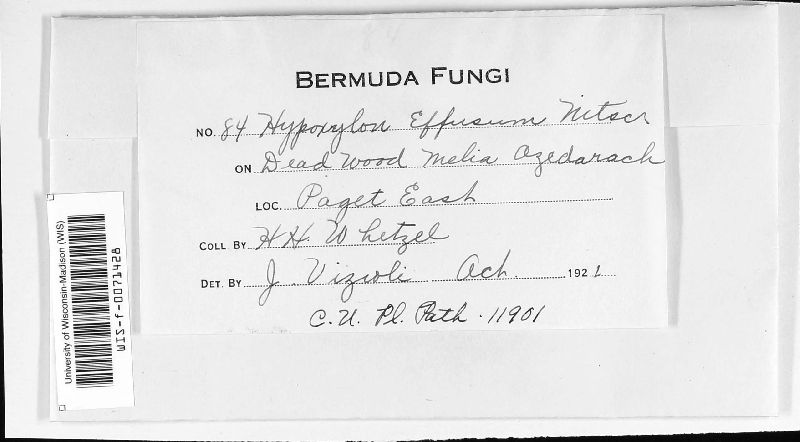 BERMUDA FUNGI
NO. 84 Hypoxylon Effusum Nitsch
ON Dead Wood Melia Azedarach
LOC. Paget East
COLL. BY H H Whetzel
DET. BY J. Vizioli Ach 1921
C. U. Pl. Path. 11901
University of Wisconsin-Madison (WIS)
WIS-f-0071428